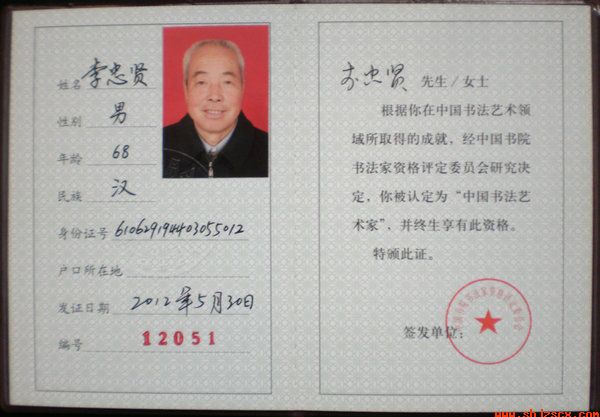 姓名 李忠贤
性别 男
年龄 68
民族 汉
身份证号 610629194403055012
户口所在地
发证日期 2012年5月30日
编号 12051
李忠贤 先生／女士
根据你在中国书法艺术领
域所取得的成就，经中国书院
书法家资格评定委员会研究决
定，你被认定为“中国书法艺
术家”，并终生享有此资格。
特颁此证。
签发单位：